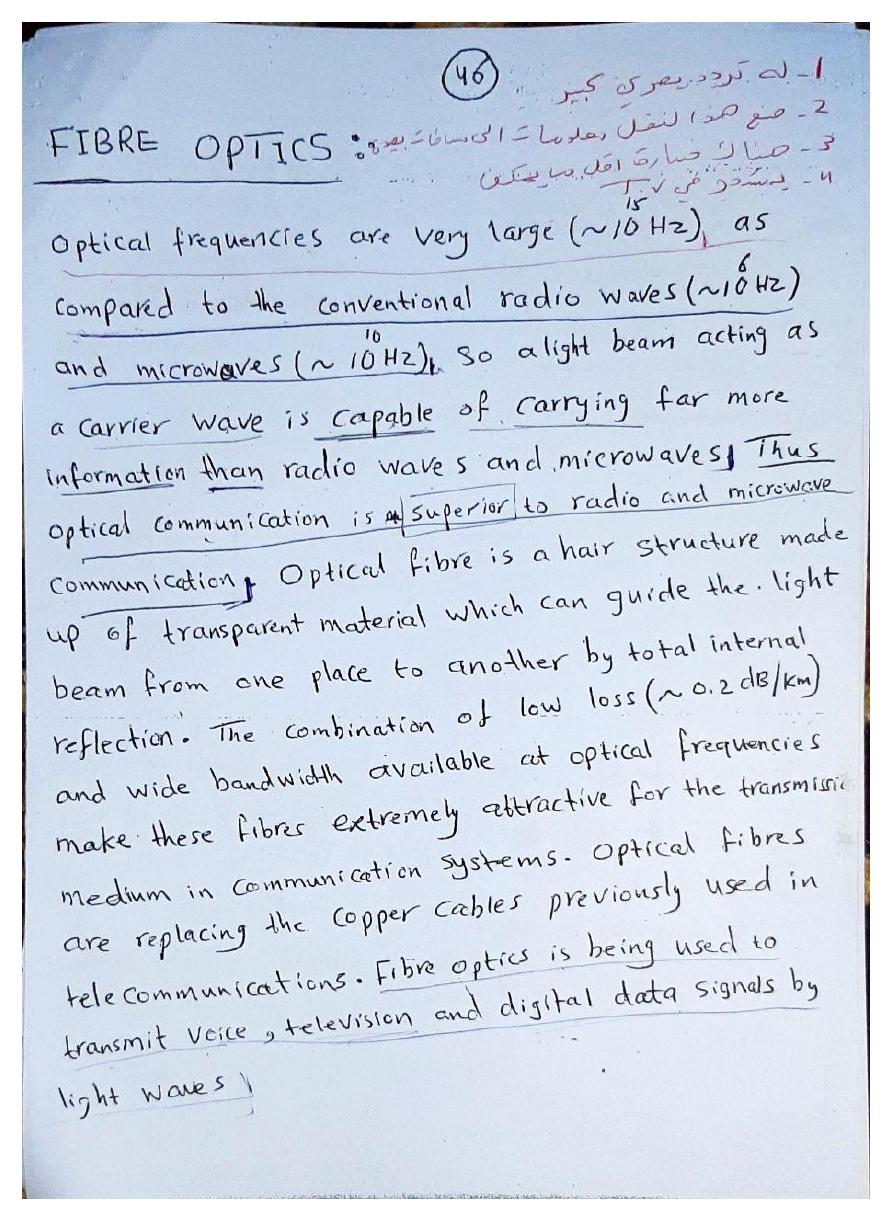 46
1- له تردد بصري كبير
2- صنع هذا لنقل معلومات الى مسافات بعيدة
3- هناك خسارة اقل ما يمكن
4- يستخدم في T.V
FIBRE OPTICS :
Optical frequencies are very large (~10¹⁵ Hz), as
compared to the conventional radio waves (~10⁶ Hz)
and microwaves (~ 10¹⁰ Hz), So a light beam acting as
a carrier wave is capable of carrying far more
information than radio waves and microwaves, Thus
optical communication is superior to radio and microwave
communication, Optical fibre is a hair structure made
up of transparent material which can guide the light
beam from one place to another by total internal
reflection. The combination of low loss (~ 0.2 dB/km)
and wide bandwidth available at optical frequencies
make these fibres extremely attractive for the transmissi
medium in communication systems. Optical fibres
are replacing the copper cables previously used in
telecommunications. Fibre optics is being used to
transmit voice, television and digital data signals by
light waves